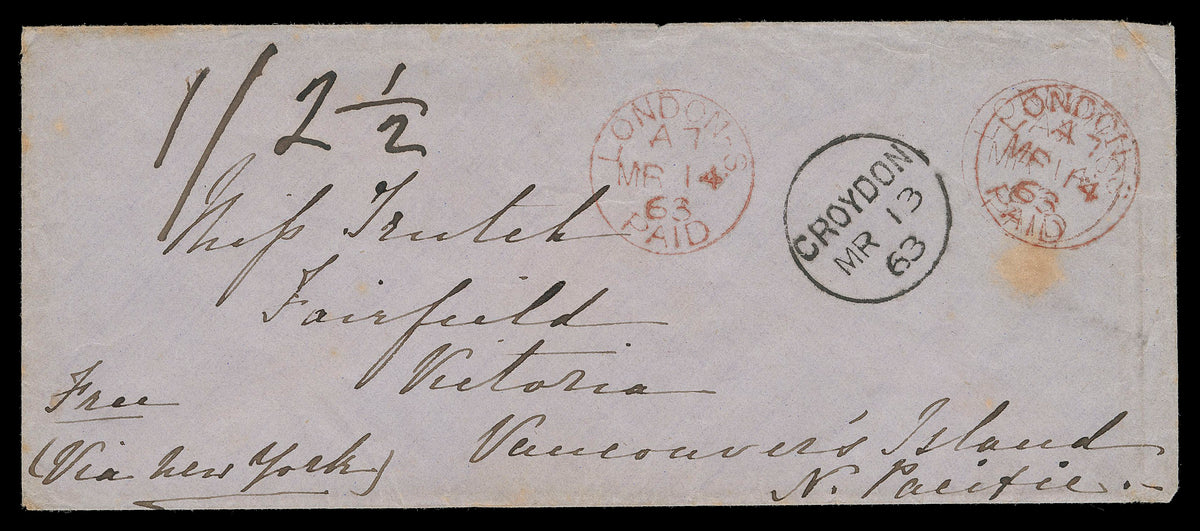 1/2½
LONDON-S
A7
MR 14
63
PAID
CROYDON
MR 13
63
LONDON-S
A7
MR 14
63
PAID
Miss Trutch
Fairfield
Victoria
Free
(Via New York)
Vancouver's Island
N. Pacific.-